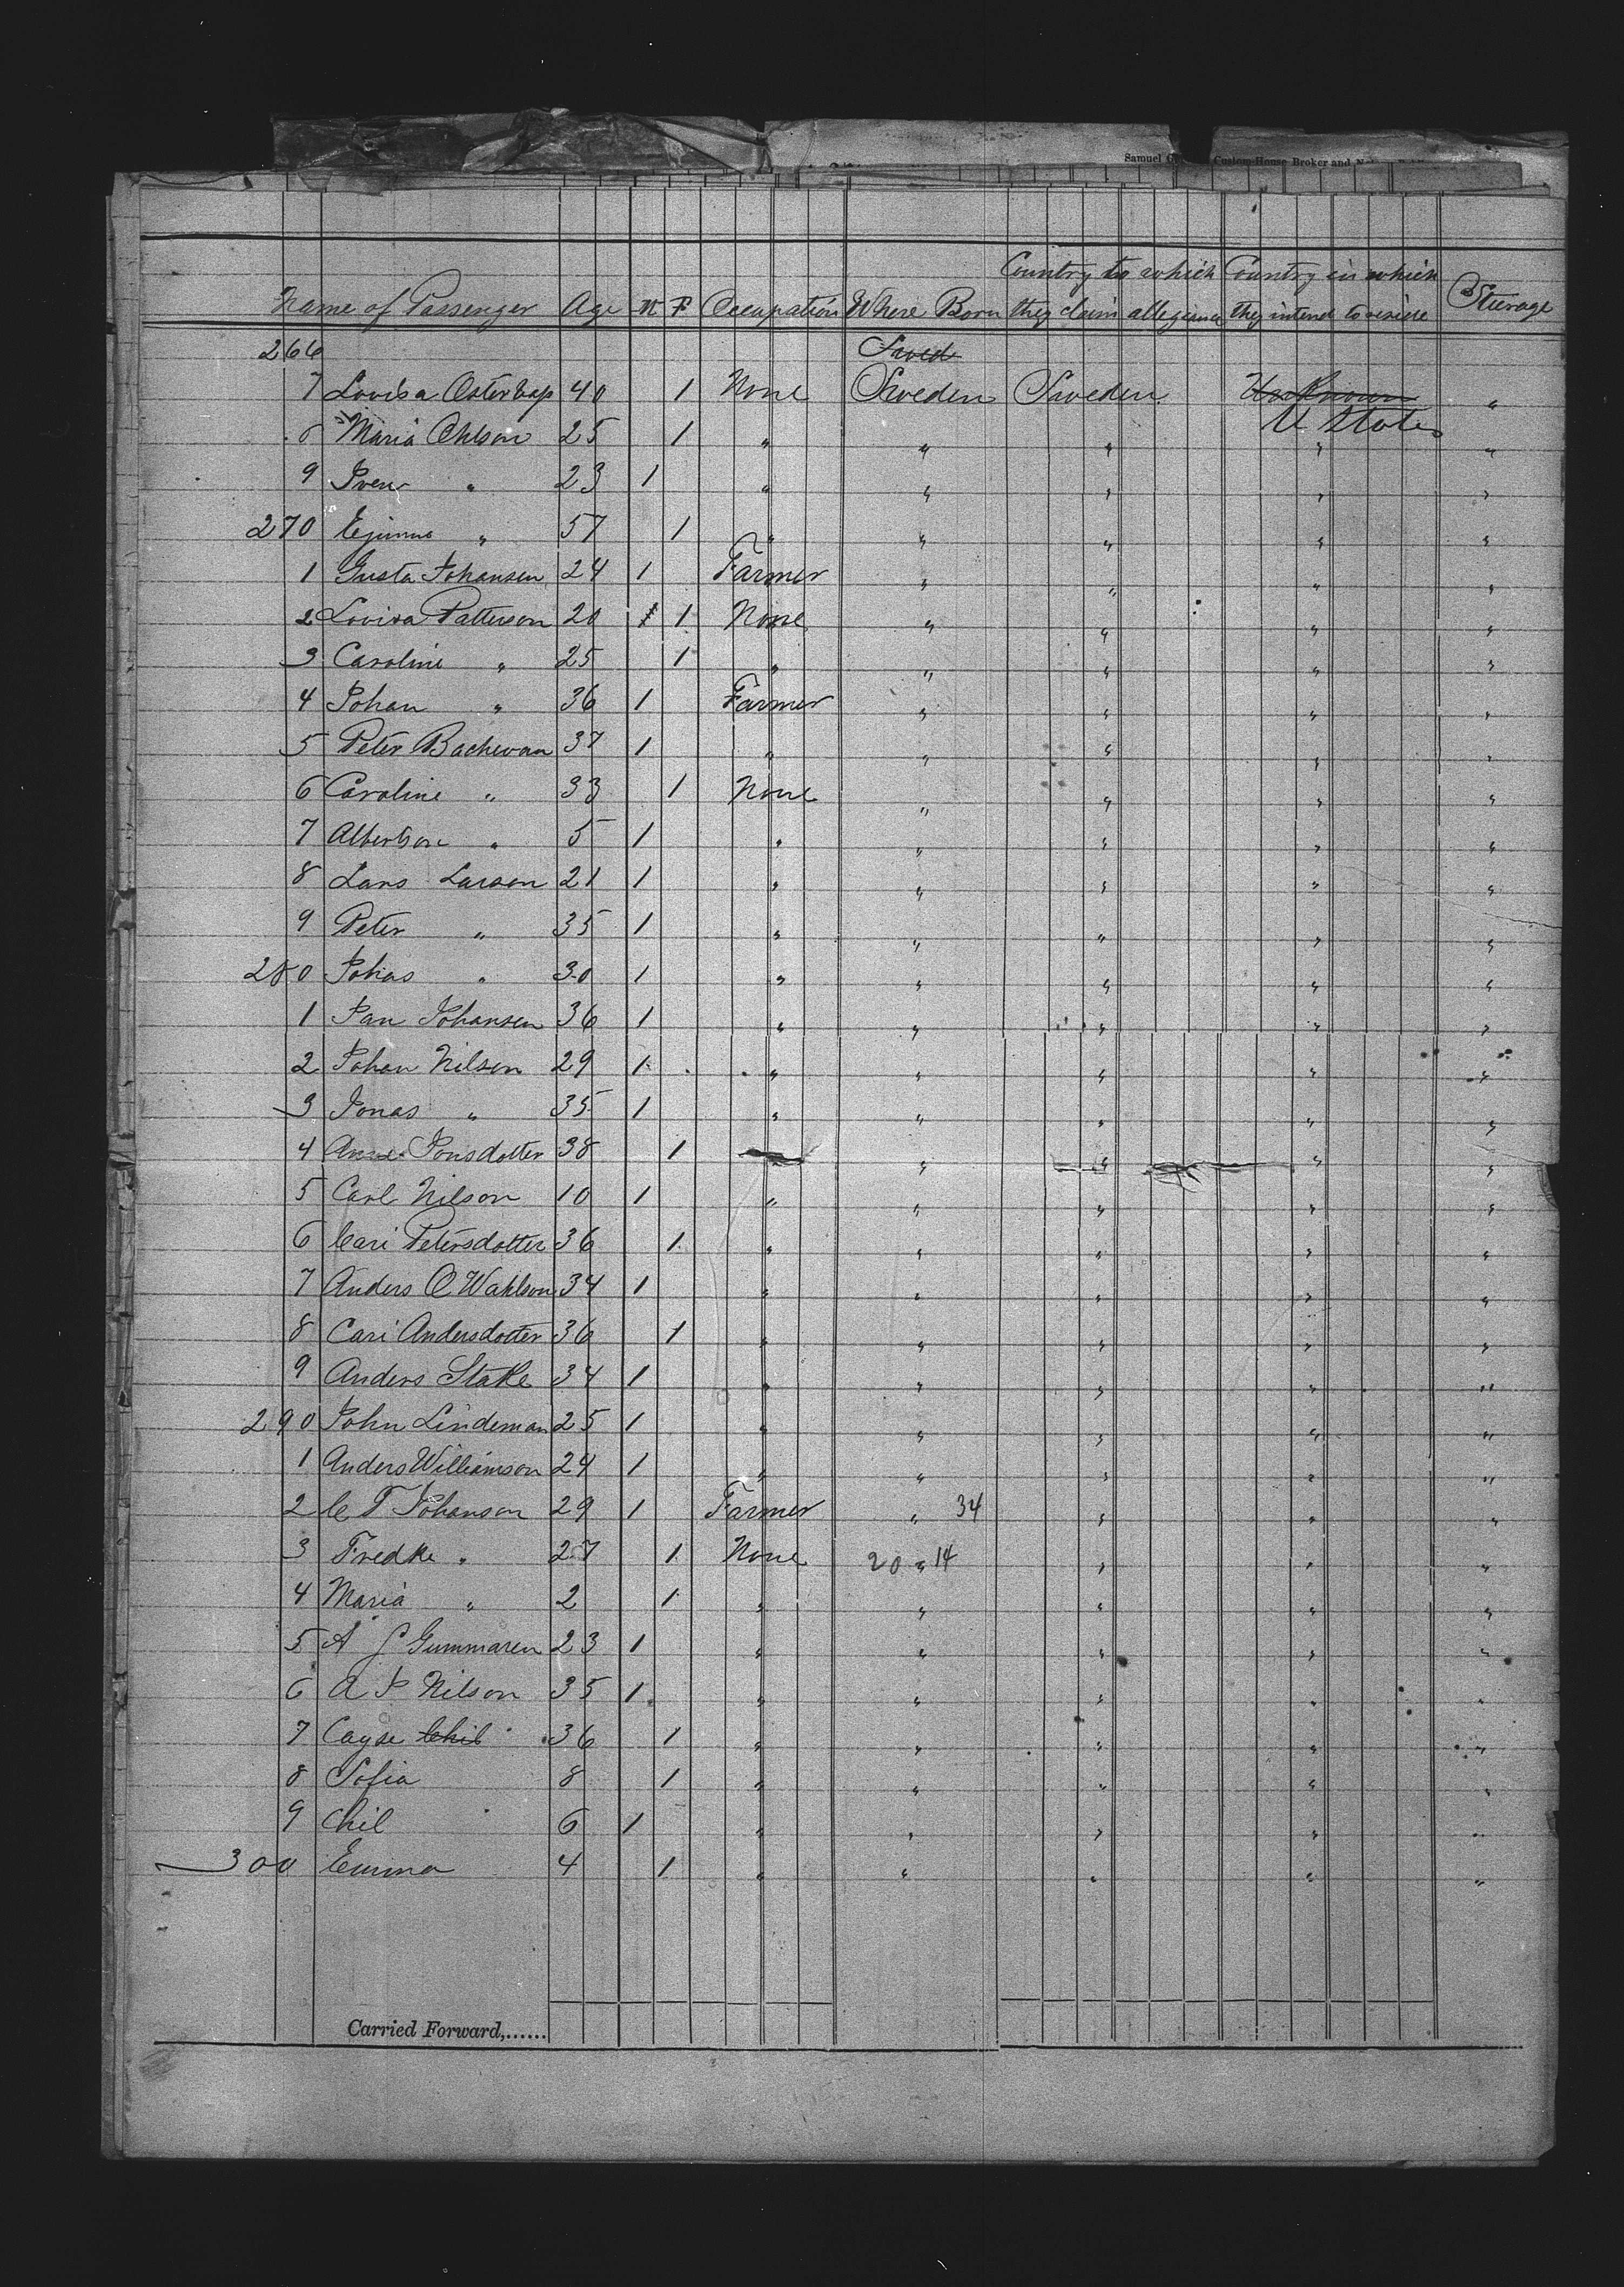 Samuel Custom-House Broker and
Country to which Country in which
Name of Passenger Age M F Occupation Where Born they claim allegiance they intend to reside Steerage
266 Swed
7 Lovisa 40 1 None Sweden Sweden Unknown "
U States
8 Maria Ohlson 25 1 " " " " "
9 Sven " 23 1 " " " " "
270 " 57 1 " " " " "
1 Gusta Johansen 24 1 Farmer " " " "
2 Lovisa Patterson 20 1 1 None " " " "
3 Caroline " 25 1 " " " " "
4 Johan " 36 1 Farmer " " " "
5 Peter 37 1 " " " " "
6 Caroline " 33 1 None " " " "
7 Albertson " 5 1 " " " " "
8 Lars Larson 21 1 " " " " "
9 Peter " 35 1 " " " " "
280 Johas " 30 1 " " " " "
1 Jan Johansen 36 1 " " " " "
2 Johan Nilson 29 1 " " " " "
3 Jonas " 35 1 " " " " "
4 Anne Jonsdotter 38 1 " " " "
5 Carl Nilson 10 1 " " " " "
6 Cari Petersdotter 36 1 " " " " "
7 Anders O Wahlson 34 1 " " " " "
8 Cari Andersdotter 36 1 " " " " "
9 Anders Stake 34 1 " " " " "
290 John Lindeman 25 1 " " " " "
1 Anders Williamson 24 1 " " " " "
2 C T Johanson 29 1 Farmer " 34 " " "
3 Fredke " 27 1 None 20 " 14 " " "
4 Maria " 2 1 " " " " "
5 A J Gummaren 23 1 " " " " "
6 A P Nilson 35 1 " " " " "
7 Cayse Chil " 36 1 " " " " "
8 Sofia 8 1 " " " " "
9 Chil " 6 1 " " " " "
300 Emma 4 1 " " " " "
Carried Forward,......